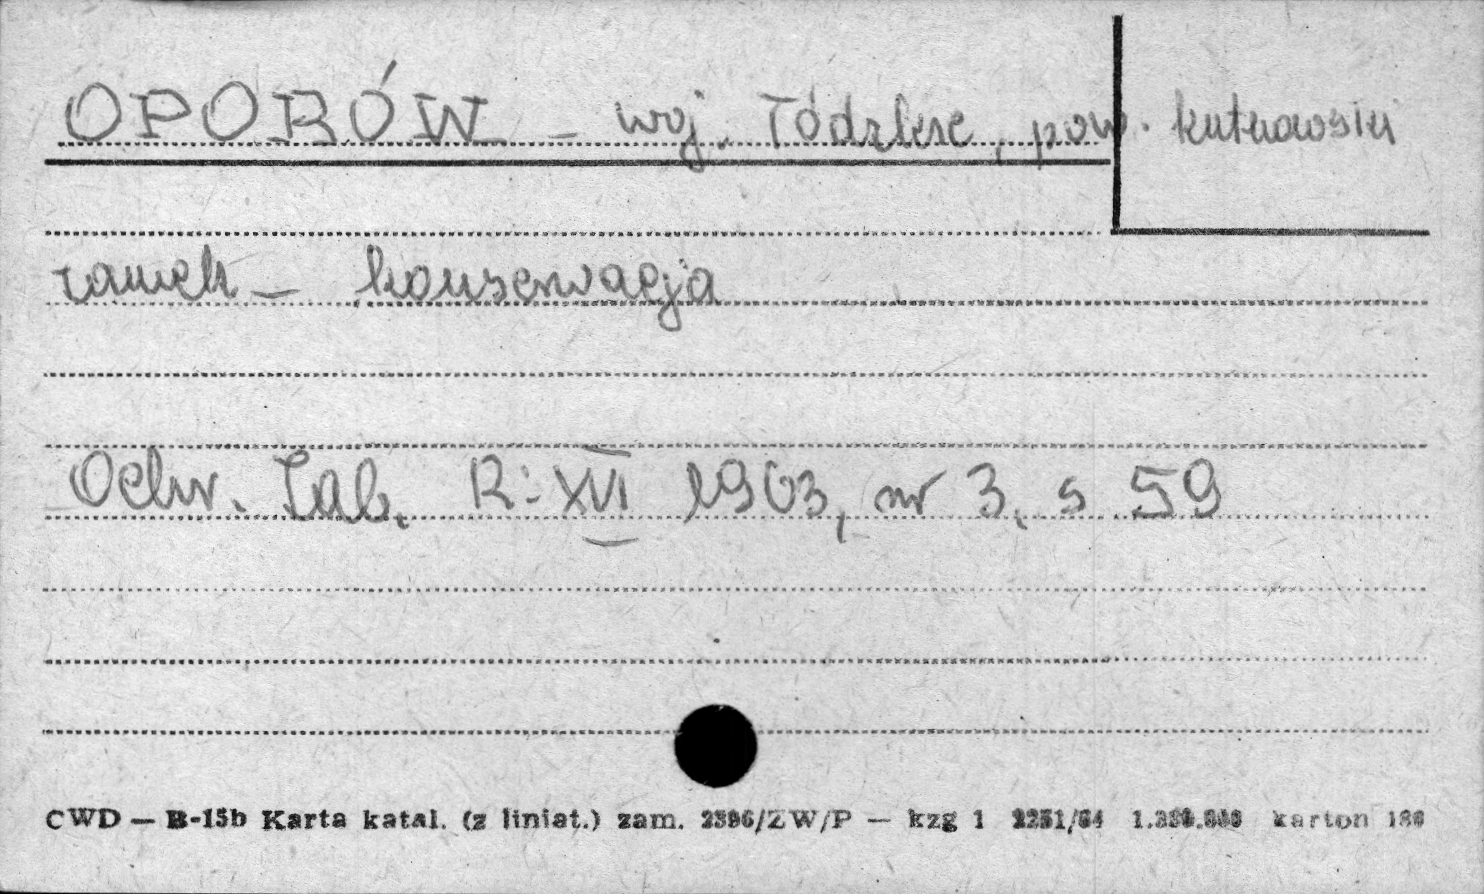 OPORÓW – woj. Łódzkie, pow. kutnowski
zamek – konserwacja
Ochr. Zab. R: XVI 1963, nr 3, s 59
CWD — B-15b Karta katal. (z liniat.) zam. 2396/ZW/P — kzg 1 karton